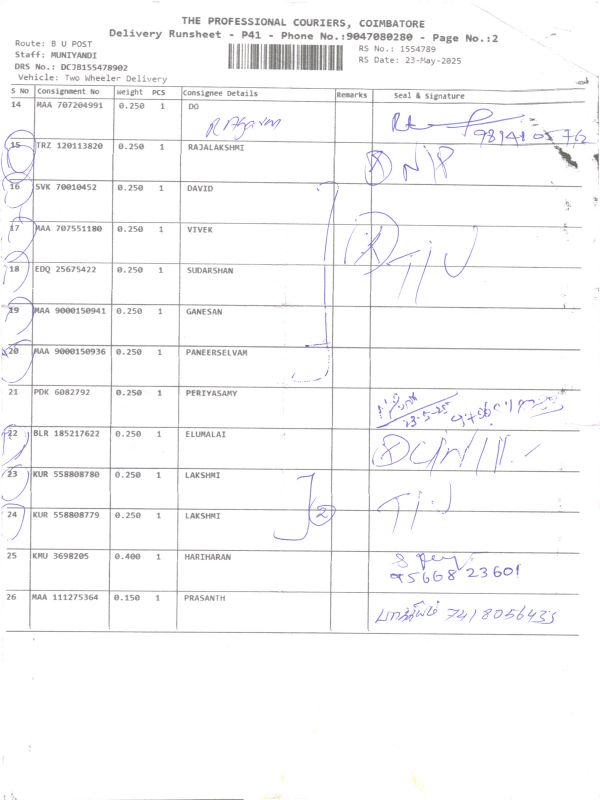 THE PROFESSIONAL COURIERS, COIMBATORE
Delivery Runsheet - P41 - Phone No.:9047080280 - Page No.:2
Route: B U POST
Staff: MUNIYANDI
DRS No.: DCJB155478902
Vehicle: Two Wheeler Delivery
RS No.: 1554789
RS Date: 23-May-2025
S No Consignment No Weight PCS Consignee Details Remarks Seal & Signature
14 MAA 707204991 0.250 1 DO
15 TRZ 120113820 0.250 1 RAJALAKSHMI
16 SVK 70010452 0.250 1 DAVID
17 MAA 707551180 0.250 1 VIVEK
18 EDQ 25675422 0.250 1 SUDARSHAN
19 MAA 9000150941 0.250 1 GANESAN
20 MAA 9000150936 0.250 1 PANEERSELVAM
21 PDK 6082792 0.250 1 PERIYASAMY
23-5-25
22 BLR 185217622 0.250 1 ELUMALAI
23 KUR 558808780 0.250 1 LAKSHMI
24 KUR 558808779 0.250 1 LAKSHMI 2
25 KMU 3698205 0.400 1 HARIHARAN
95668 23601
26 MAA 111275364 0.150 1 PRASANTH 7418056435